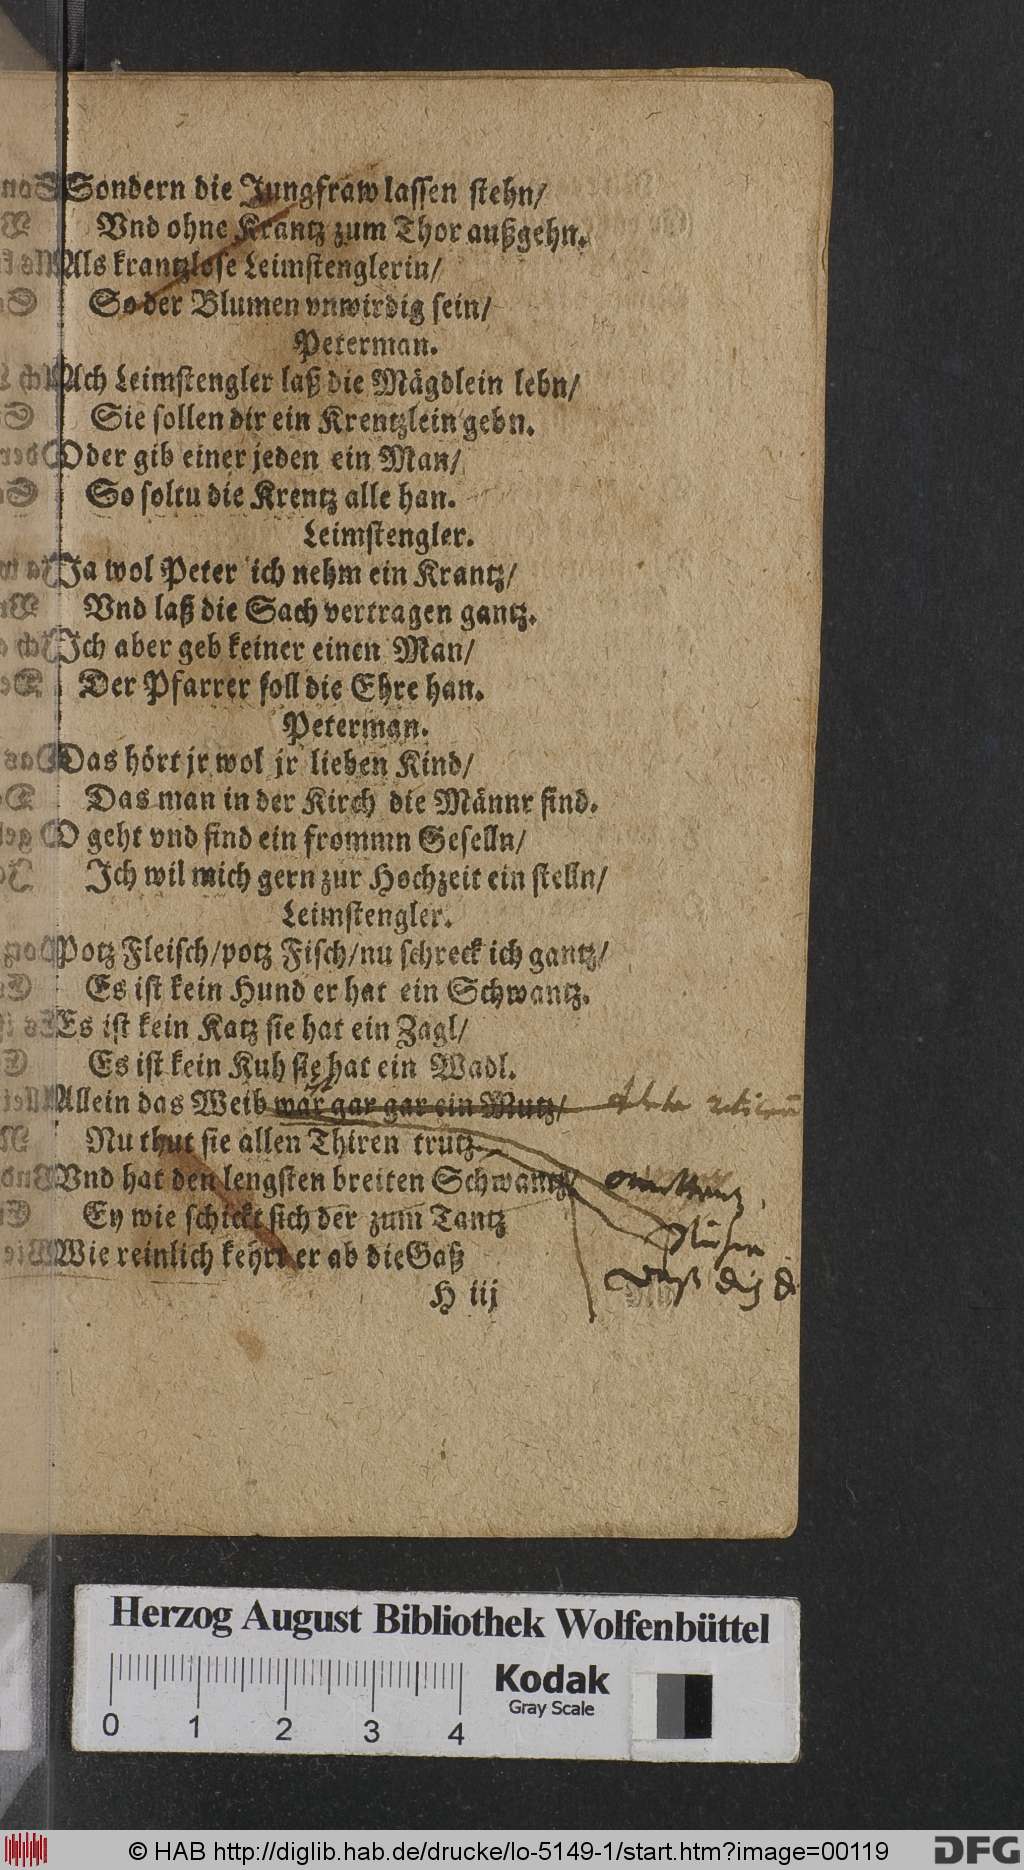 Sondern die Jungfraw lassen stehn/
Vnd ohne Krantz zum Thor außgehn.
Als krantzlose Leimstenglerin/
So der Blumen vnwirdig sein/
Peterman.
Ach Leimstengler laß die Mägdlein lebn/
Sie sollen dir ein Krentzlein gebn.
Oder gib einer jeden ein Man/
So soltu die Krentz alle han.
Leimstengler.
Ja wol Peter ich nehm ein Krantz/
Vnd laß die Sach vertragen gantz.
Ich aber geb keiner einen Man/
Der Pfarrer soll die Ehre han.
Peterman.
Das hört jr wol jr lieben Kind/
Das man in der Kirch die Männr find.
O geht vnd find ein frommn Geselln/
Ich wil mich gern zur Hochzeit ein stelln/
Leimstengler.
Potz Fleisch/potz Fisch/nu schreck ich gantz/
Es ist kein Hund er hat ein Schwantz.
Es ist kein Katz sie hat ein Zagl/
Es ist kein Kuh sie hat ein Wadl.
Allein das Weib war gar gar ein Mutz/
Nu thut sie allen Thiren trutz
Vnd hat den lengsten breiten Schwantz/
Ey wie schickt sich der zum Tantz
Wie reinlich kehrt er ab die Gaß
H iij
Herzog August Bibliothek Wolfenbüttel
Kodak
Gray Scale
0 1 2 3 4
© HAB http://diglib.hab.de/drucke/lo-5149-1/start.htm?image=00119
DFG